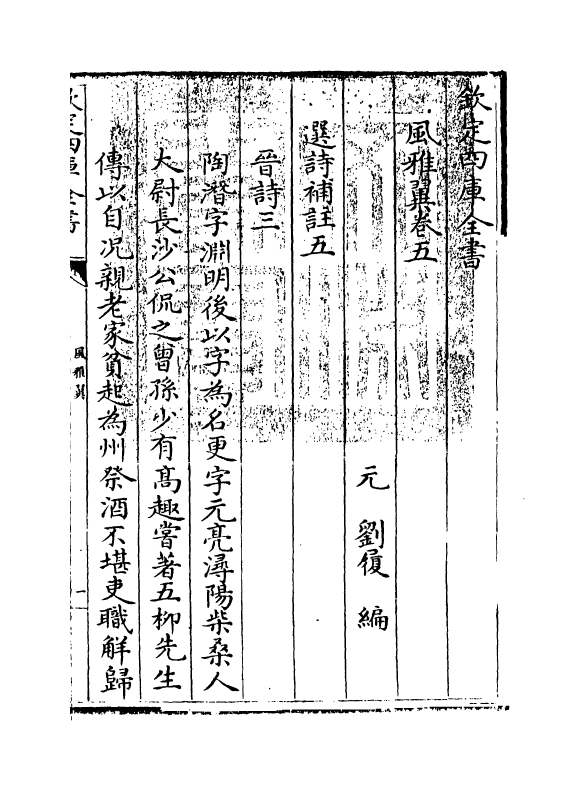 欽定四庫全書
風雅翼卷五
元 劉履 編
選詩補註五
晉詩三
陶潛字淵明後以字為名更字元亮潯陽柴桑人
大尉長沙公侃之曾孫少有髙趣嘗著五柳先生
傳以自况親老家貧起為州祭酒不堪吏職解歸
欽定四庫全書
風雅翼
一